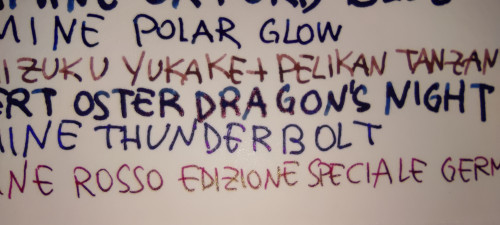 MINE POLAR GLOW
IZUKU YUKAKE + PELIKAN TANZAN
ERT OSTER DRAGON'S NIGHT
INE THUNDERBOLT
NE ROSSO EDIZIONE SPECIALE GERM